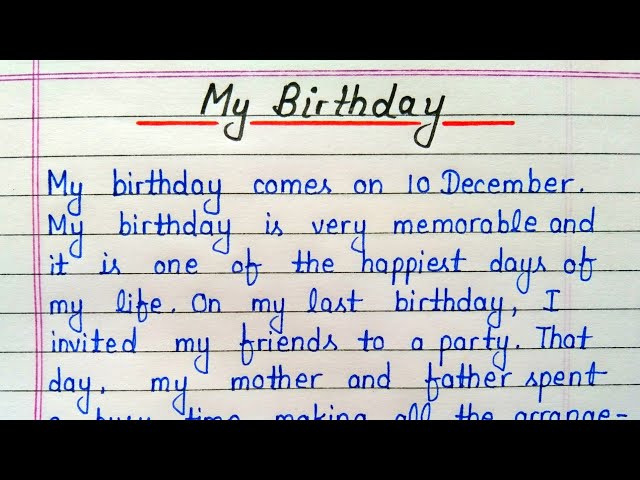 My Birthday
My birthday comes on 10 December.
My birthday is very memorable and
it is one of the happiest days of
my life. On my last birthday, I
invited my friends to a party. That
day, my mother and father spent
a busy time making all the arrange-